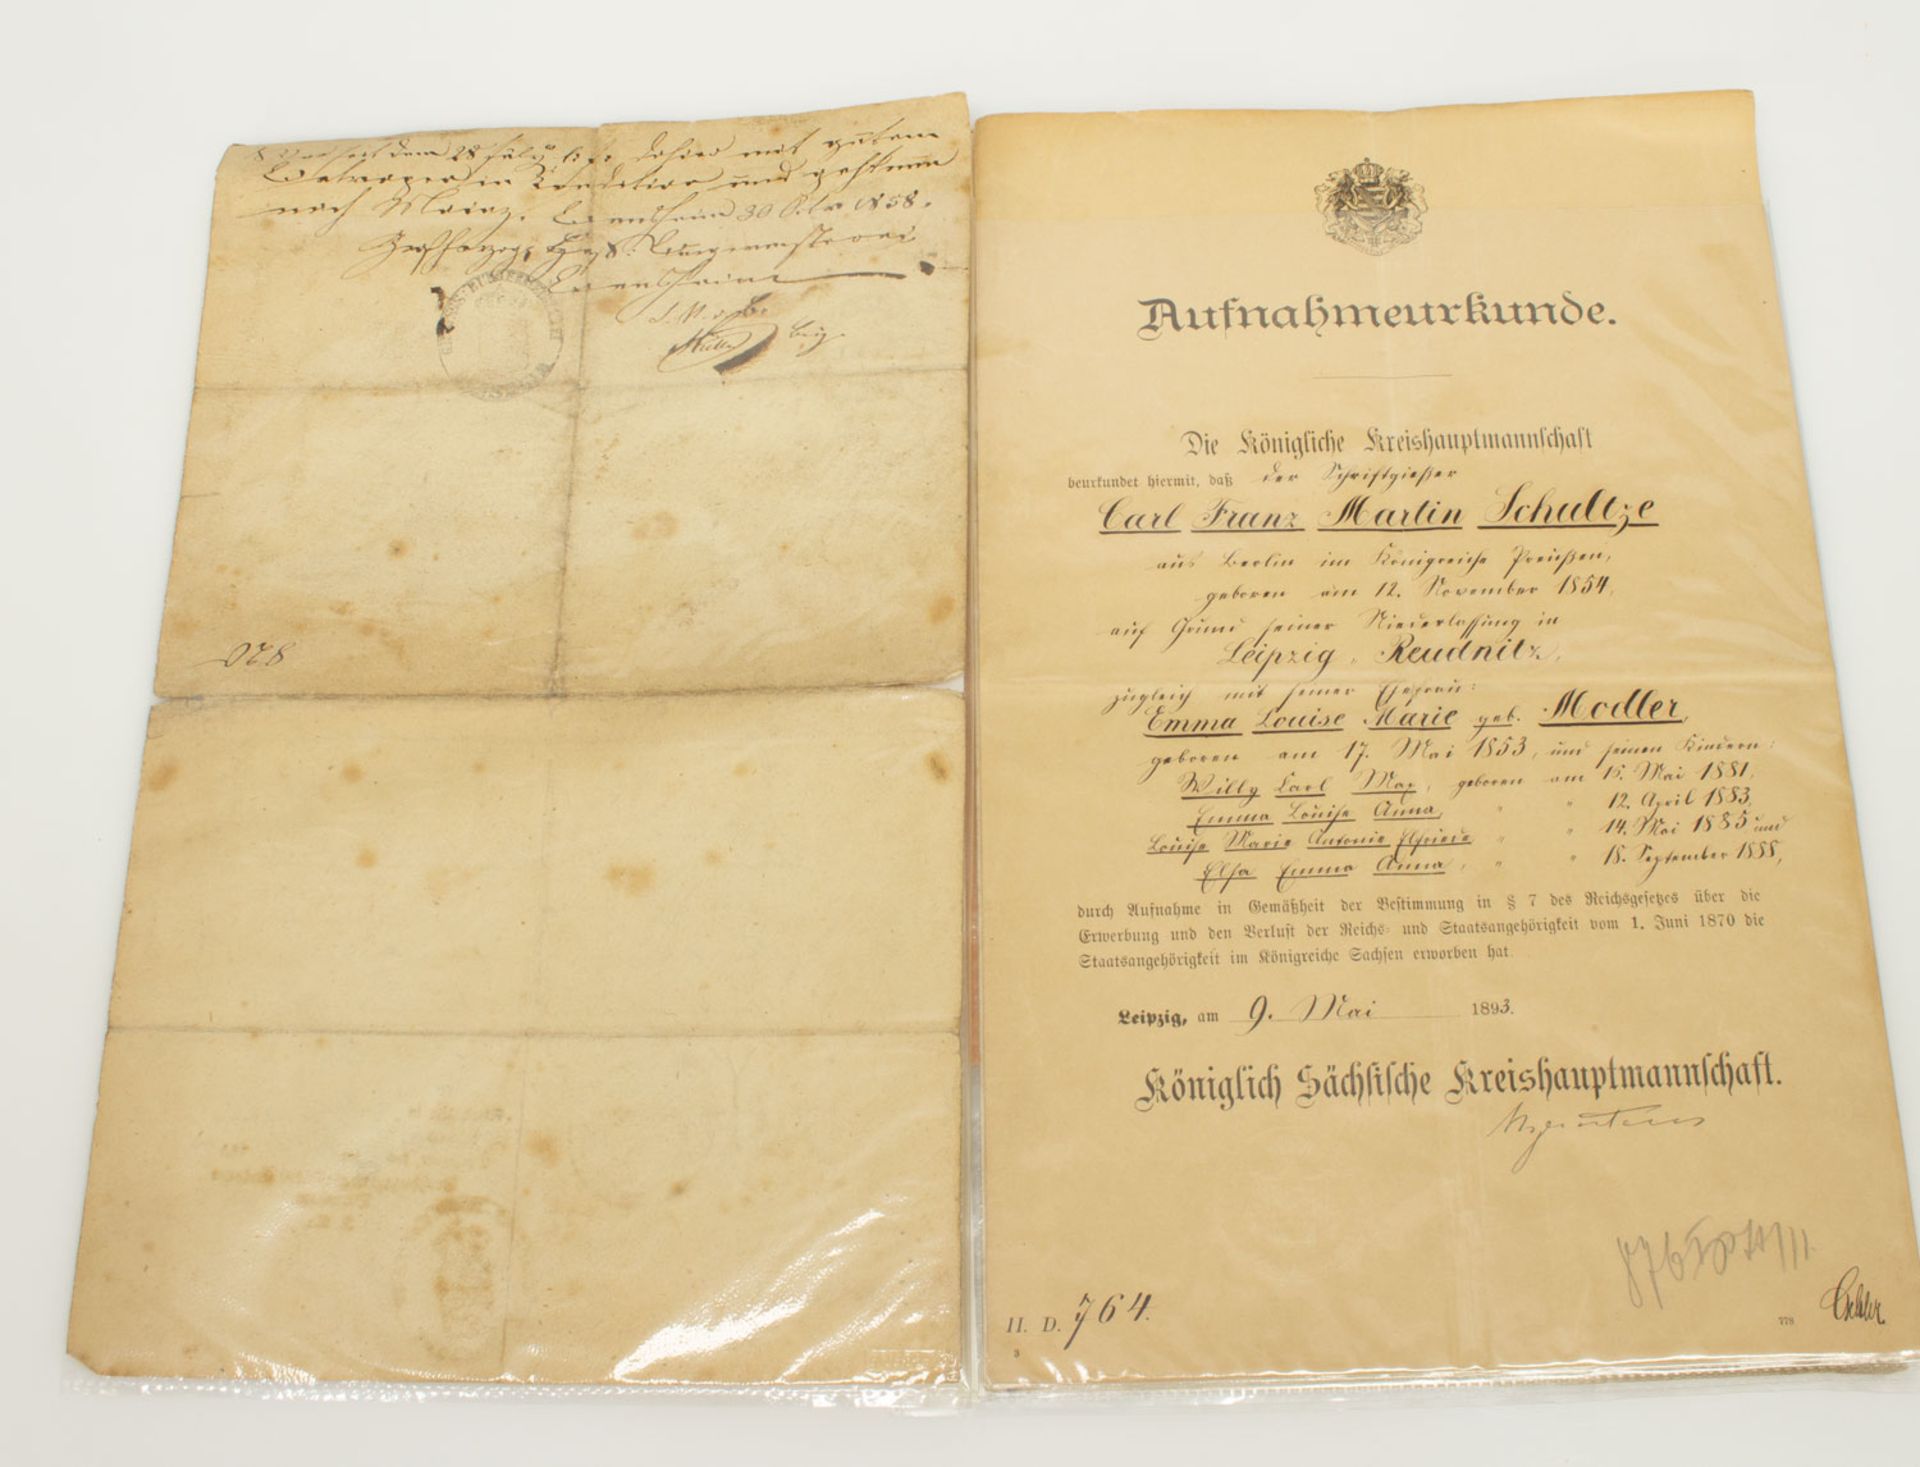 dem 28 July mit gutem
und
nach Mainz. 30 1858.
Großherzogl. Hess.
Müller
820
Aufnahmeurkunde.
Die Königliche Kreishauptmannschaft
beurkundet hiermit, daß der Schriftgießer
Carl Franz Martin Schultze
aus Berlin im Königreiche Preußen,
geboren am 12. November 1854,
auf Grund seiner Niederlassung in
Leipzig-Reudnitz,
zugleich mit seiner Ehefrau:
Emma Louise Marie geb. Modler,
geboren am 17. Mai 1853, und seinen Kindern:
Willy Carl Max, geboren am 15. Mai 1881,
Emma Louise Anna, " " 12. April 1883,
Louise Marie Antonie Elfriede " " 14. Mai 1885 und
Elsa Emma Anna, " " 18. September 1888,
durch Aufnahme in Gemäßheit der Bestimmung in § 7 des Reichsgesetzes über die
Erwerbung und den Verlust der Reichs- und Staatsangehörigkeit vom 1. Juni 1870 die
Staatsangehörigkeit im Königreiche Sachsen erworben hat.
Leipzig, am 9. Mai 1893.
Königlich Sächsische Kreishauptmannschaft.
II. D. 764.
3
778